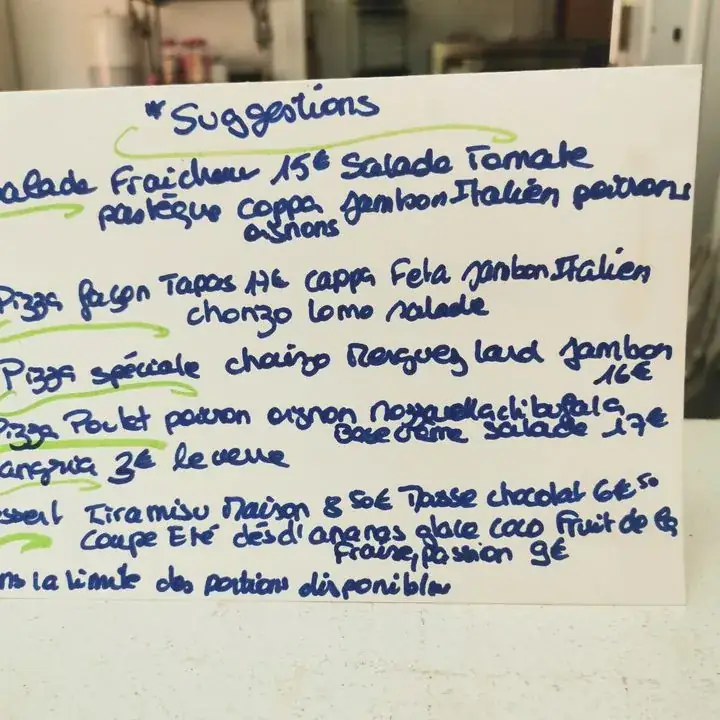 *Suggestions
alade Fraicheur 15€ Salade Tomate
pastèque coppa jambon Italien poivrons
oignons
Pizza façon Tapas 17€ coppa Feta jambon Italien
chorizo lomo salade
Pizza spéciale chorizo Merguez lard jambon
16€
Pizza Poulet poivron oignon mozzarella di bufala
Base crème salade 17€
angria 3€ le verre
essert Tiramisu Maison 8 50€ Tasse chocolat 6€50
Coupe Eté dés d'ananas glace coco Fruit de la
Fraise, passion 9€
ns la limite des portions disponibles